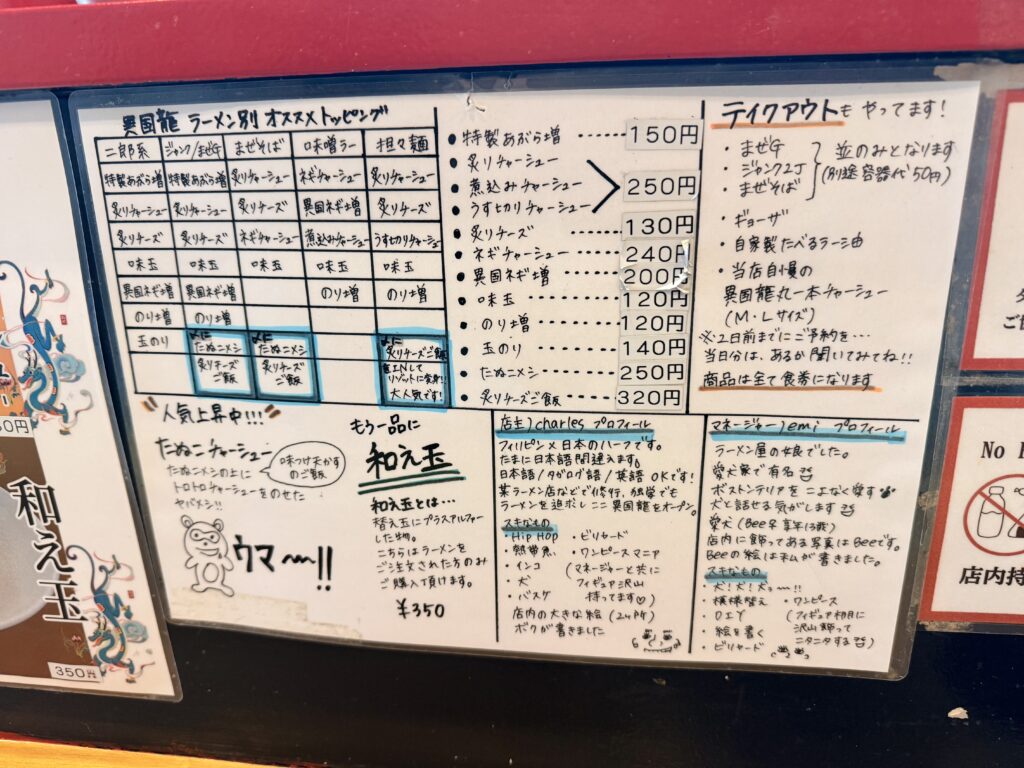 異国龍 ラーメン別 オススメトッピング
二郎系 ジャンク/まぜG まぜそば 味噌ラー 担々麺
特製あぶら増 特製あぶら増 炙りチャーシュー ネギチャーシュー 炙りチャーシュー
炙りチャーシュー 炙りチャーシュー 炙りチーズ 異国ネギ増 炙りチーズ
炙りチーズ 炙りチーズ ネギチャーシュー 煮込みチャーシュー うす切りチャーシュー
味玉 味玉 味玉 味玉 味玉
異国ネギ増 異国ネギ増 のり増 のり増
のり増 のり増
玉のり 〆に たぬこメシ 〆に たぬこメシ 〆に 炙りチーズご飯
炙りチーズ ご飯 炙りチーズ ご飯
リゾットに変身!!
大人気です!
・特製あぶら増 150円
・炙りチャーシュー
・煮込みチャーシュー 250円
・うす切りチャーシュー
・炙りチーズ 130円
・ネギチャーシュー 240円
・異国ネギ増 200円
・味玉 120円
・のり増 120円
・玉のり 140円
・たぬこメシ 250円
・炙りチーズご飯 320円
テイクアウトも やってます!
・まぜG
・ジャンク2J
・まぜそば
並のみとなります
(別途 容器代 50円)
・ギョーザ
・自家製たべるラー油
・当店自慢の
異国龍丸一本チャーシュー
(M・Lサイズ)
※2日前までにご予約を…
当日分は、あるか聞いてみてね!!
商品は全て食券になります
"人気上昇中!!!"
たぬこチャーシュー
たぬこメシの上に
トロトロチャーシューをのせた
ヤバメシ!!
味つけ天かす
のご飯
ウマ〜!!
もう一品に
和え玉
和え玉とは…
替え玉にプラスアルファー
した物。
こちらはラーメンを
ご注文された方のみ
ご購入頂けます。
¥350
店主)charles プロフィール
フィリピン×日本のハーフです。
たまに日本語間違えます。
日本語/タガログ語/英語 OKです!
某ラーメン店などで修行、独学でも
ラーメンを追求しここ異国龍をオープン。
スキなもの
・HIP HOP
・熱帯魚
・インコ
・犬
・バスケ
・ビリヤード
・ワンピースマニア
(マネージャーと共に
フィギュア沢山
持ってます♡)
店内の大きな絵(2ヶ所)
ボクが書きました
マネージャー)emi プロフィール
ラーメン屋の女良でした。
愛犬家で有名
ボストンテリアをこよなく愛す
犬と話せる気がします
愛犬(Bee享年13歳)
店内に飾ってある写真はBeeです。
Beeの絵は私が書きました。
スキなもの
・犬!犬!犬〜!!
・模様替え
・DIY
・絵を書く
・ビリヤード
・ワンピース
(フィギュア
沢山飾って
ニタニタする)
和え玉
350円
No
店内持